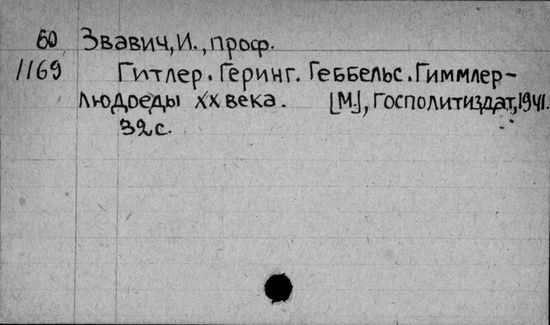 60 Звавич, И., проф.
1169 Гитлер. Геринг. Геббельс. Гиммлер-
людоеды XX века. [М.], Госполитиздат, 1941.
32 с.